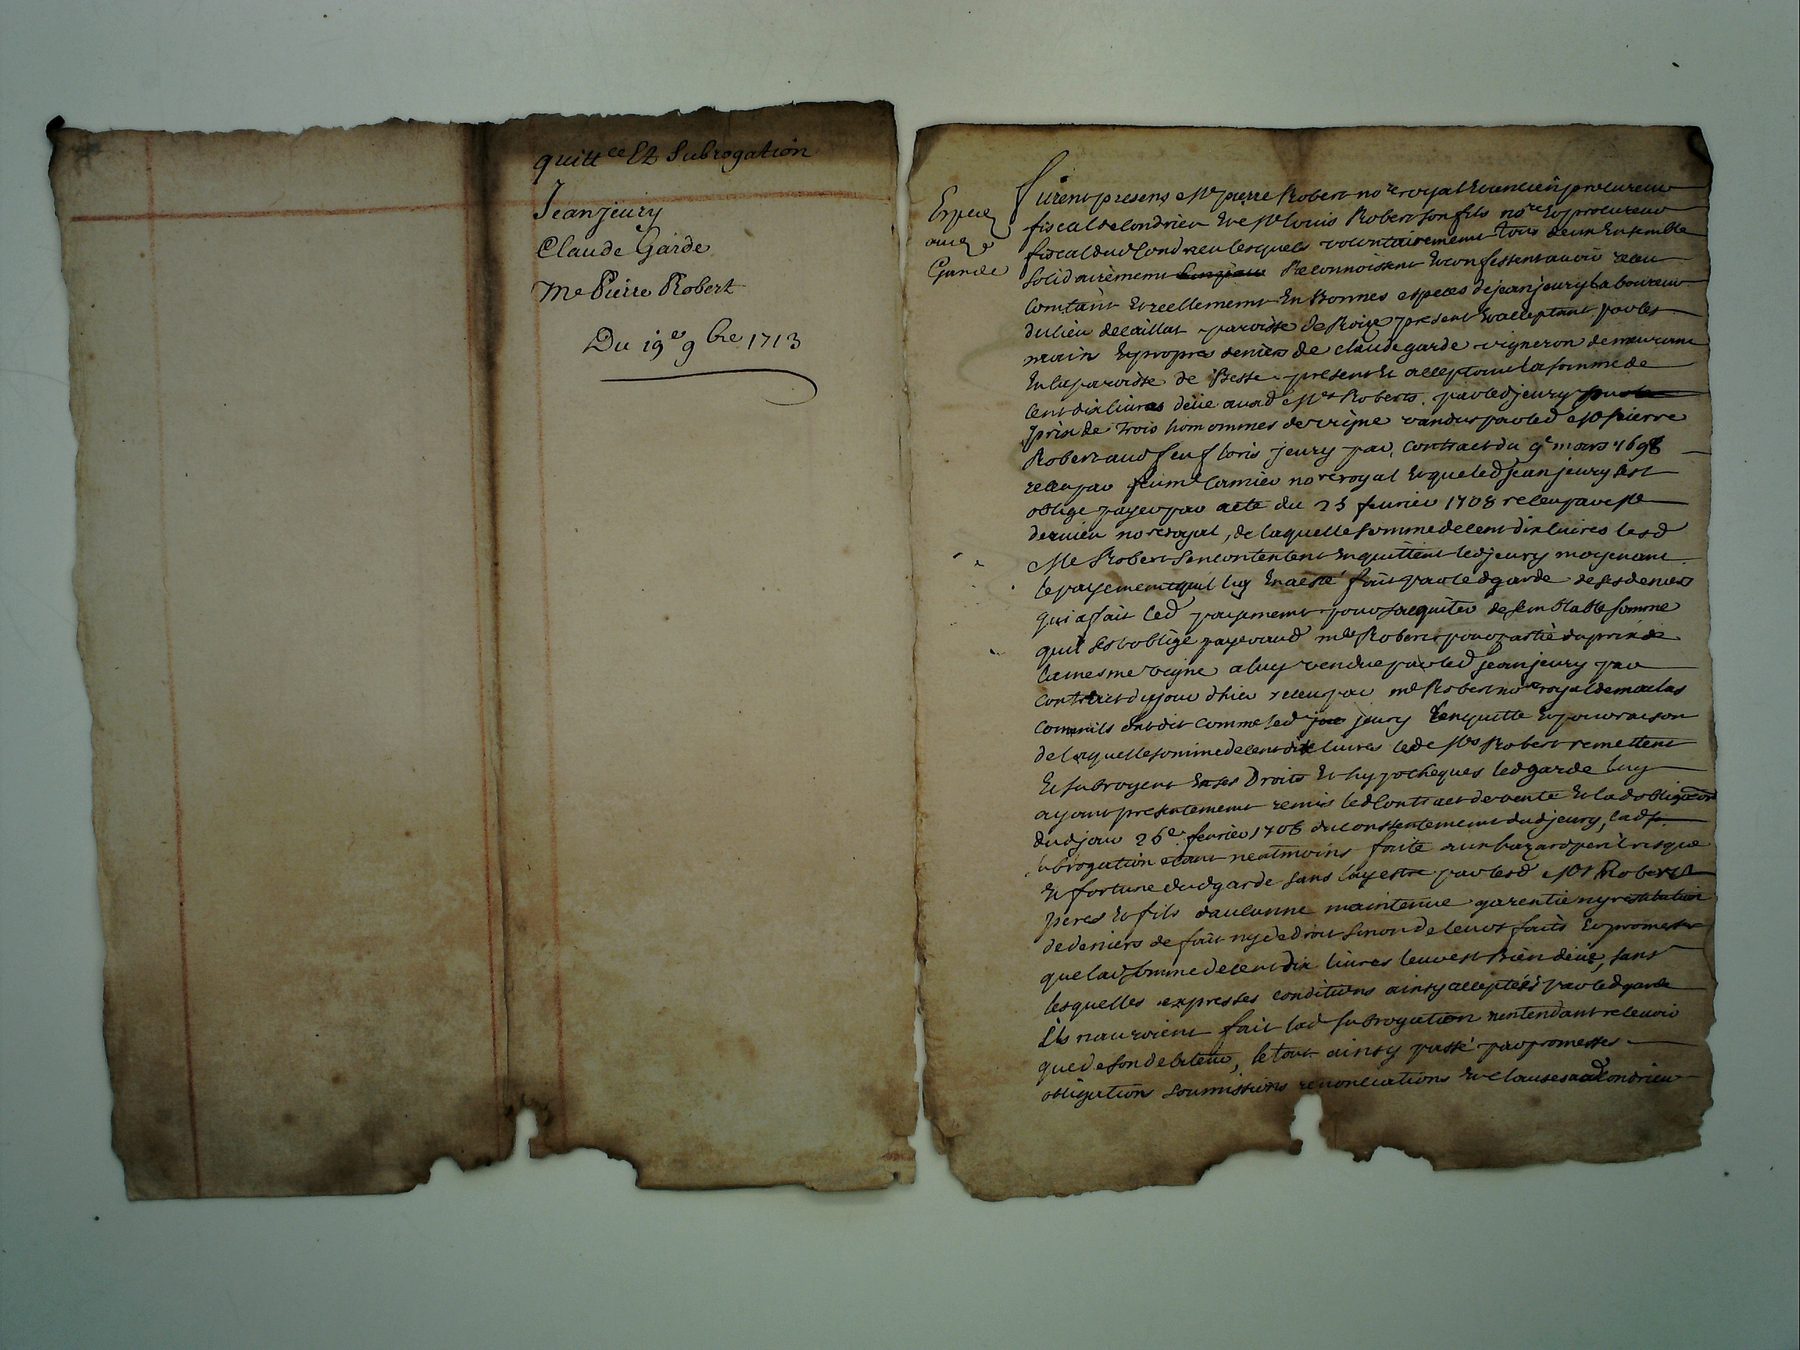 quitt.ce Et Subrogation
Jean jeury
Claude Garde
Me Pierre Robert
Du 19e 9bre 1713
Garde
furent presens Me pierre Robert no.re royal Et ancien procureur
fiscal de Condrieu Et Me Louis Robert son fils no.re Et procureur
fiscal dud Condrieu lesquels volontairement tous deux Ensemble
Solidairement Reconnoissent Et confessent avoir receu
Contant Et reellement En Bonnes especes de jean jeury Laboureur
du lieu de paroisse de present Et acceptant par les
main Et propres deniers de claude garde vigneron demeurant
En la paroisse de Besse present Et acceptant la somme de
Cent dix livres deüe aud Mes Roberts par led jeury
prix de trois hommées de vigne vandus par led Me pierre
Robert aud feu floris jeury par Contract du 9e mars 1698
receu par feu me Camier no.re royal Et que led jean jeury Est
obligé payer par acte du 25 fevrier 1708 receu par Me
dernier no.re royal, de laquelle somme de cent dix livres lesd
Me Robert Se contentent En quittent led jeury moyenant
le payement quil luy En a esté fait par led garde de ses deniers
qui a fait led payement pour sacquiter de semblable somme
quil sest obligé payer aud me Robert pour partie du prix de
la mesme vigne a luy vendue par led jean jeury par
Contract du jour dhier receu par me Robert no.re royal de maclas
Comm'ils ont dit comme led jeury Et pour raison
de laquelle somme de cent dix livres lesd Mes Robert remettent
Et subrogent En ses Droits Et hypocheques led garde luy
ayant presentement remis led Contract de vente Et lad obligation
dud jour 25e fevrier 1708 du consentement dud jeury, lad
subrogation etant neatmoins faite aux hazard peril risque
Et fortune dud garde sans luy estre par lesd Mes Robert
peres Et fils d'aucunne maintenue garentie ny restitution
de deniers de fait ny de droit sinon de leurs faits Et promesses
que lad somme de cent dix livres leur est Bien deüe, sans
lesquelles expresses conditions ainsy acceptées par led garde
Ils n'auroient fait lad subrogation n'entendant relevoir
que de son debiteur, le tout ainsy passé par promesses
obligations soumissions renonciations Et clauses a Condrieu